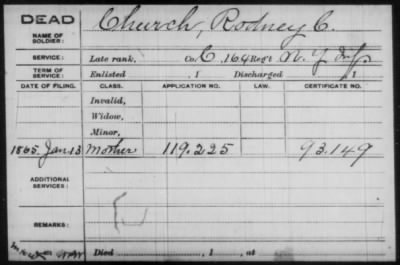 DEAD Church, Rodney C.
NAME OF SOLDIER:
SERVICE: Late rank, Co. C, 164 Reg't N. Y. Inf.
TERM OF SERVICE: Enlisted , 1 Discharged , 1
DATE OF FILING. CLASS. APPLICATION NO. LAW. CERTIFICATE NO.
Invalid,
Widow,
Minor,
1865, Jan. 13 Mother 119.225 93.149
ADDITIONAL SERVICES:
REMARKS:
Died , 1 , at